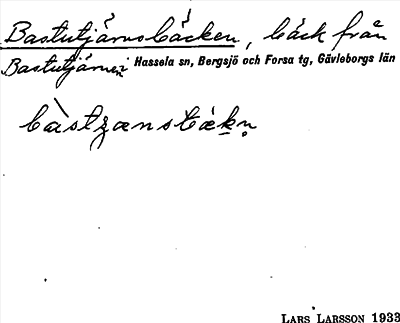 Bastutjärnsbäcken, bäck från
Bastutjärnen i Hassela sn, Bergsjö och Forsa tg, Gävleborgs län
bàstʒænsbækn̥
LARS LARSSON 1933